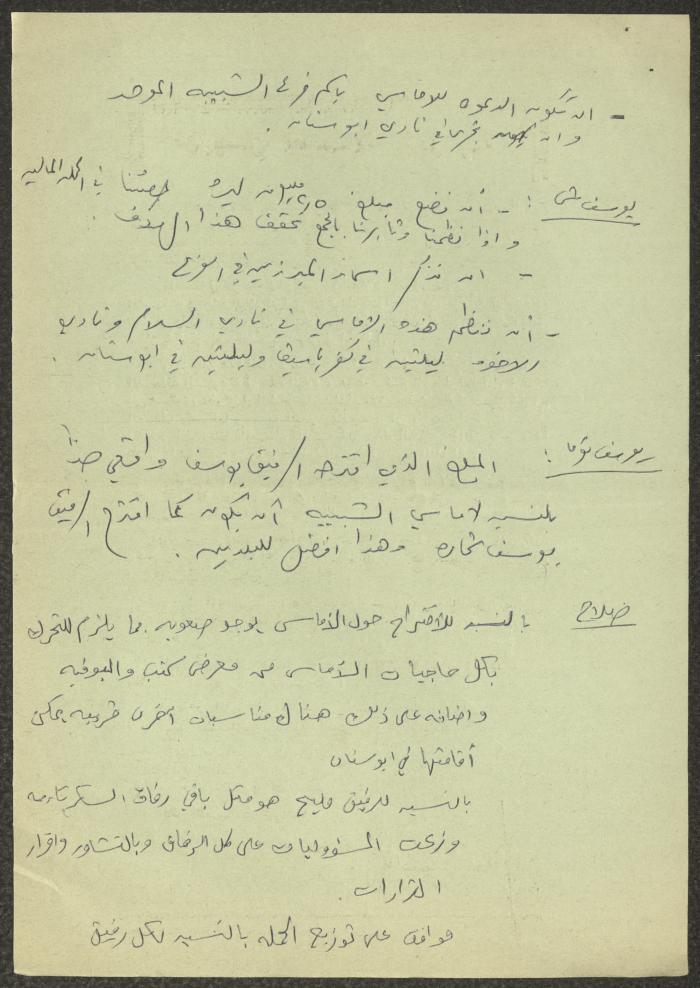 - ان تكون الدعوه للاماسي باسم فرعي الشبيبه الموحد
وان تجري في نادي ابوسنان .
يوسف : - أن نضع مبلغ مليون ليره حصتنا في الحمله الماليه
و اذا نظمنا وثابرنا بالجمع نحقق هذا الهدف .
- ان نذكر اسماء المبرزين في الفرع
- أن ننظم هذه الاماسي في نادي السلام ونادي
الاخوه ليلتين في كفرياسيف وليلتين في ابوسنان .
يوسف توما : المبلغ الذي اقترحه الرفيق يوسف واقعي جداً
بالنسبه لاماسي الشبيبه أن تكون كما اقترح الرفيق
يوسف شحاده وهذا افضل للبلدين .
صلاح بالنسبه للأقتراح حول الأماسي يوجد صعوبه مما يلزم للتحرك
بكل حاجيات الأماسي من معرض كتب والبوفيه
واضافه على ذلك هنالك مناسبات أخرى قريبه يمكن
أقامتها في ابوسنان
بالنسبه للرفيق مليح هو مثل باقي رفاق السكرتاريه
وزعت المسؤوليات على كل الرفاق وبالتشاور واقرار
القرارات .
موافق على توزيع الحمله بالنسبه لكل رفيق